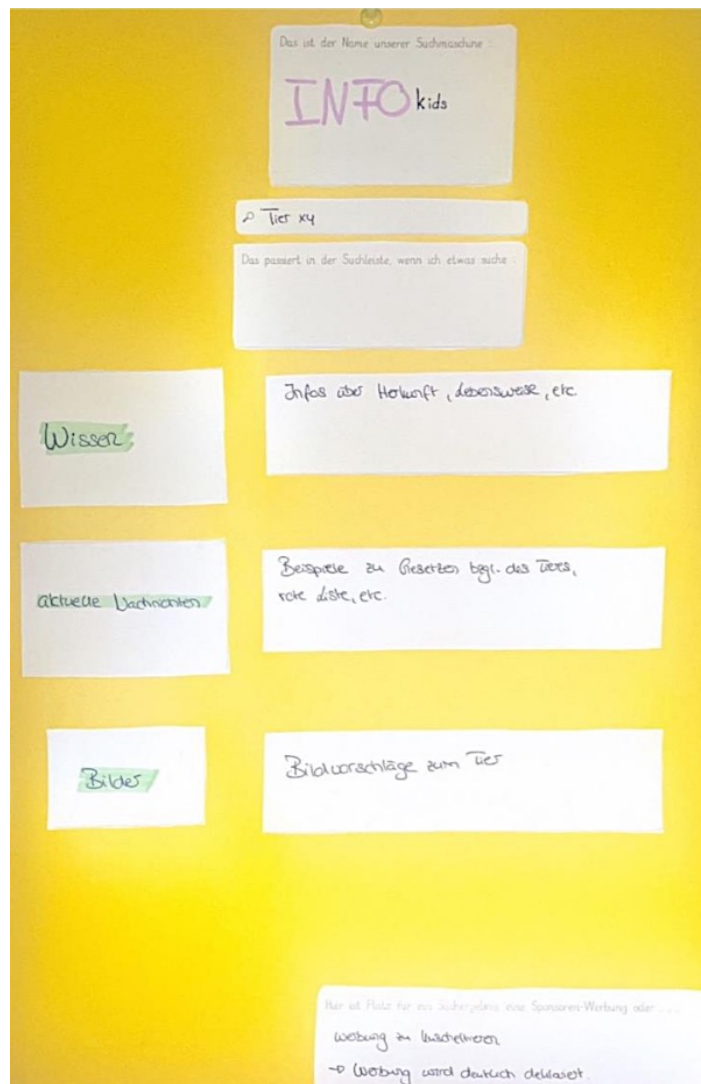 Das ist der Name unserer Suchmaschine :
INFO kids
Tier xy
Das passiert in der Suchleiste, wenn ich etwas suche :
Wissen
Infos über Herkunft, Lebensweise, etc.
aktuelle Nachrichten
Beispiele zu Gesetzen bzgl. des Tiers,
rote Liste, etc.
Bilder
Bildvorschläge zum Tier
Hier ist Platz für ein Suchergebnis, eine Sponsoren-Werbung oder ...
Werbung zu Kuscheltieren
→ Werbung wird deutlich deklariert.